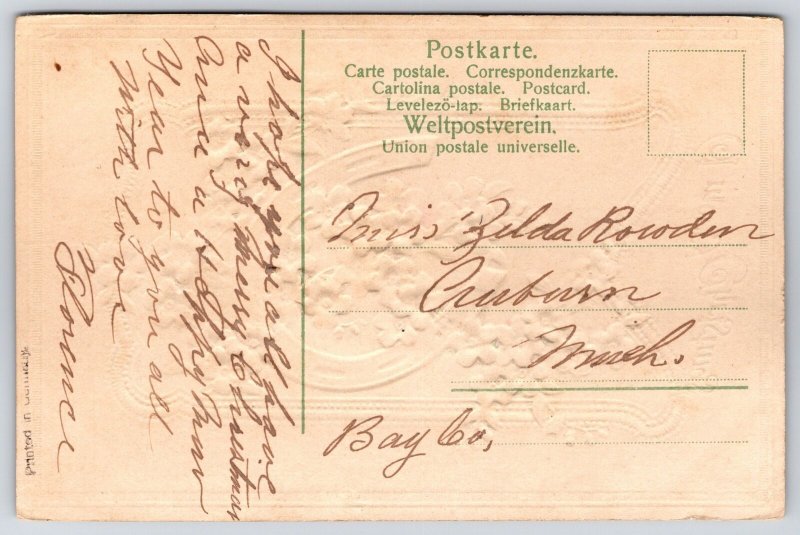 I hope you all have
a very Merry Christmas
and a Happy New
Year to you all
With love
Florence
Postkarte.
Carte postale. Correspondenzkarte.
Cartolina postale. Postcard.
Levelezö-lap. Briefkaart.
Weltpostverein.
Union postale universelle.
Miss Zelda Rowden
Auburn
Mich.
Bay Co,
Printed in Germany